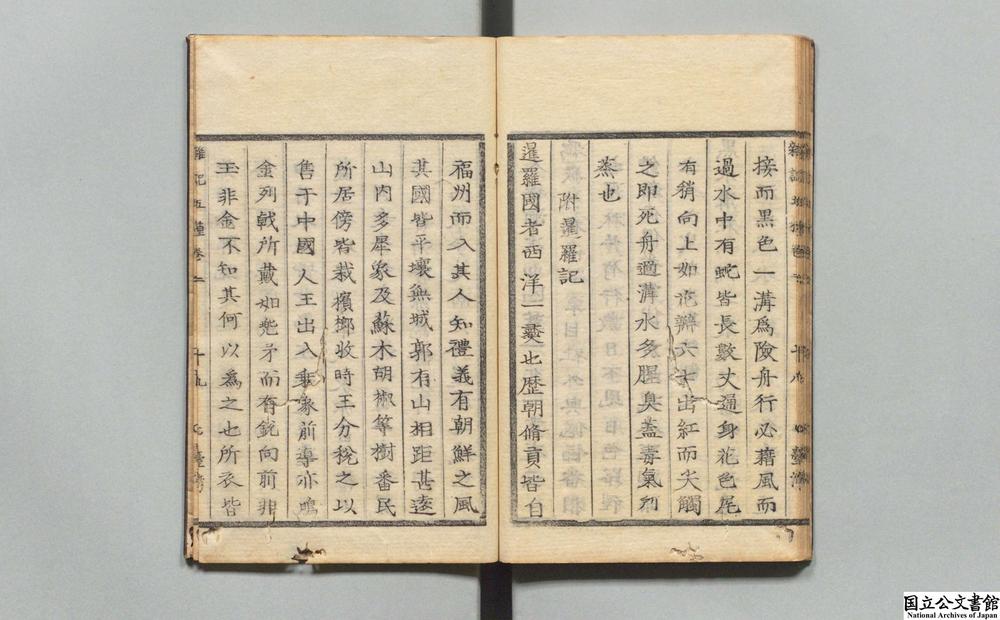 接而黑色一溝爲險舟行必藉風而
過水中有蛇皆長數丈通身花色尾
有稍向上如花瓣六七出紅而尖觸
之即死舟過溝水多腥臭蓋毒氣所
蒸也
附暹羅記
暹羅國者西洋一夷也歷朝脩貢皆自
福州而入其人知禮義有朝鮮之風
其國皆平壤無城郭有山相距甚遠
山內多犀象及蘇木胡椒等樹番民
所居傍皆栽檳榔收時王分稅之以
售于中國人王出入乘象前導亦鳴
金列戟所戴如兜矛而有銳向前非
玉非金不知其何以爲之也所衣皆
雜記五種卷二
十九
國立公文書館
National Archives of Japan